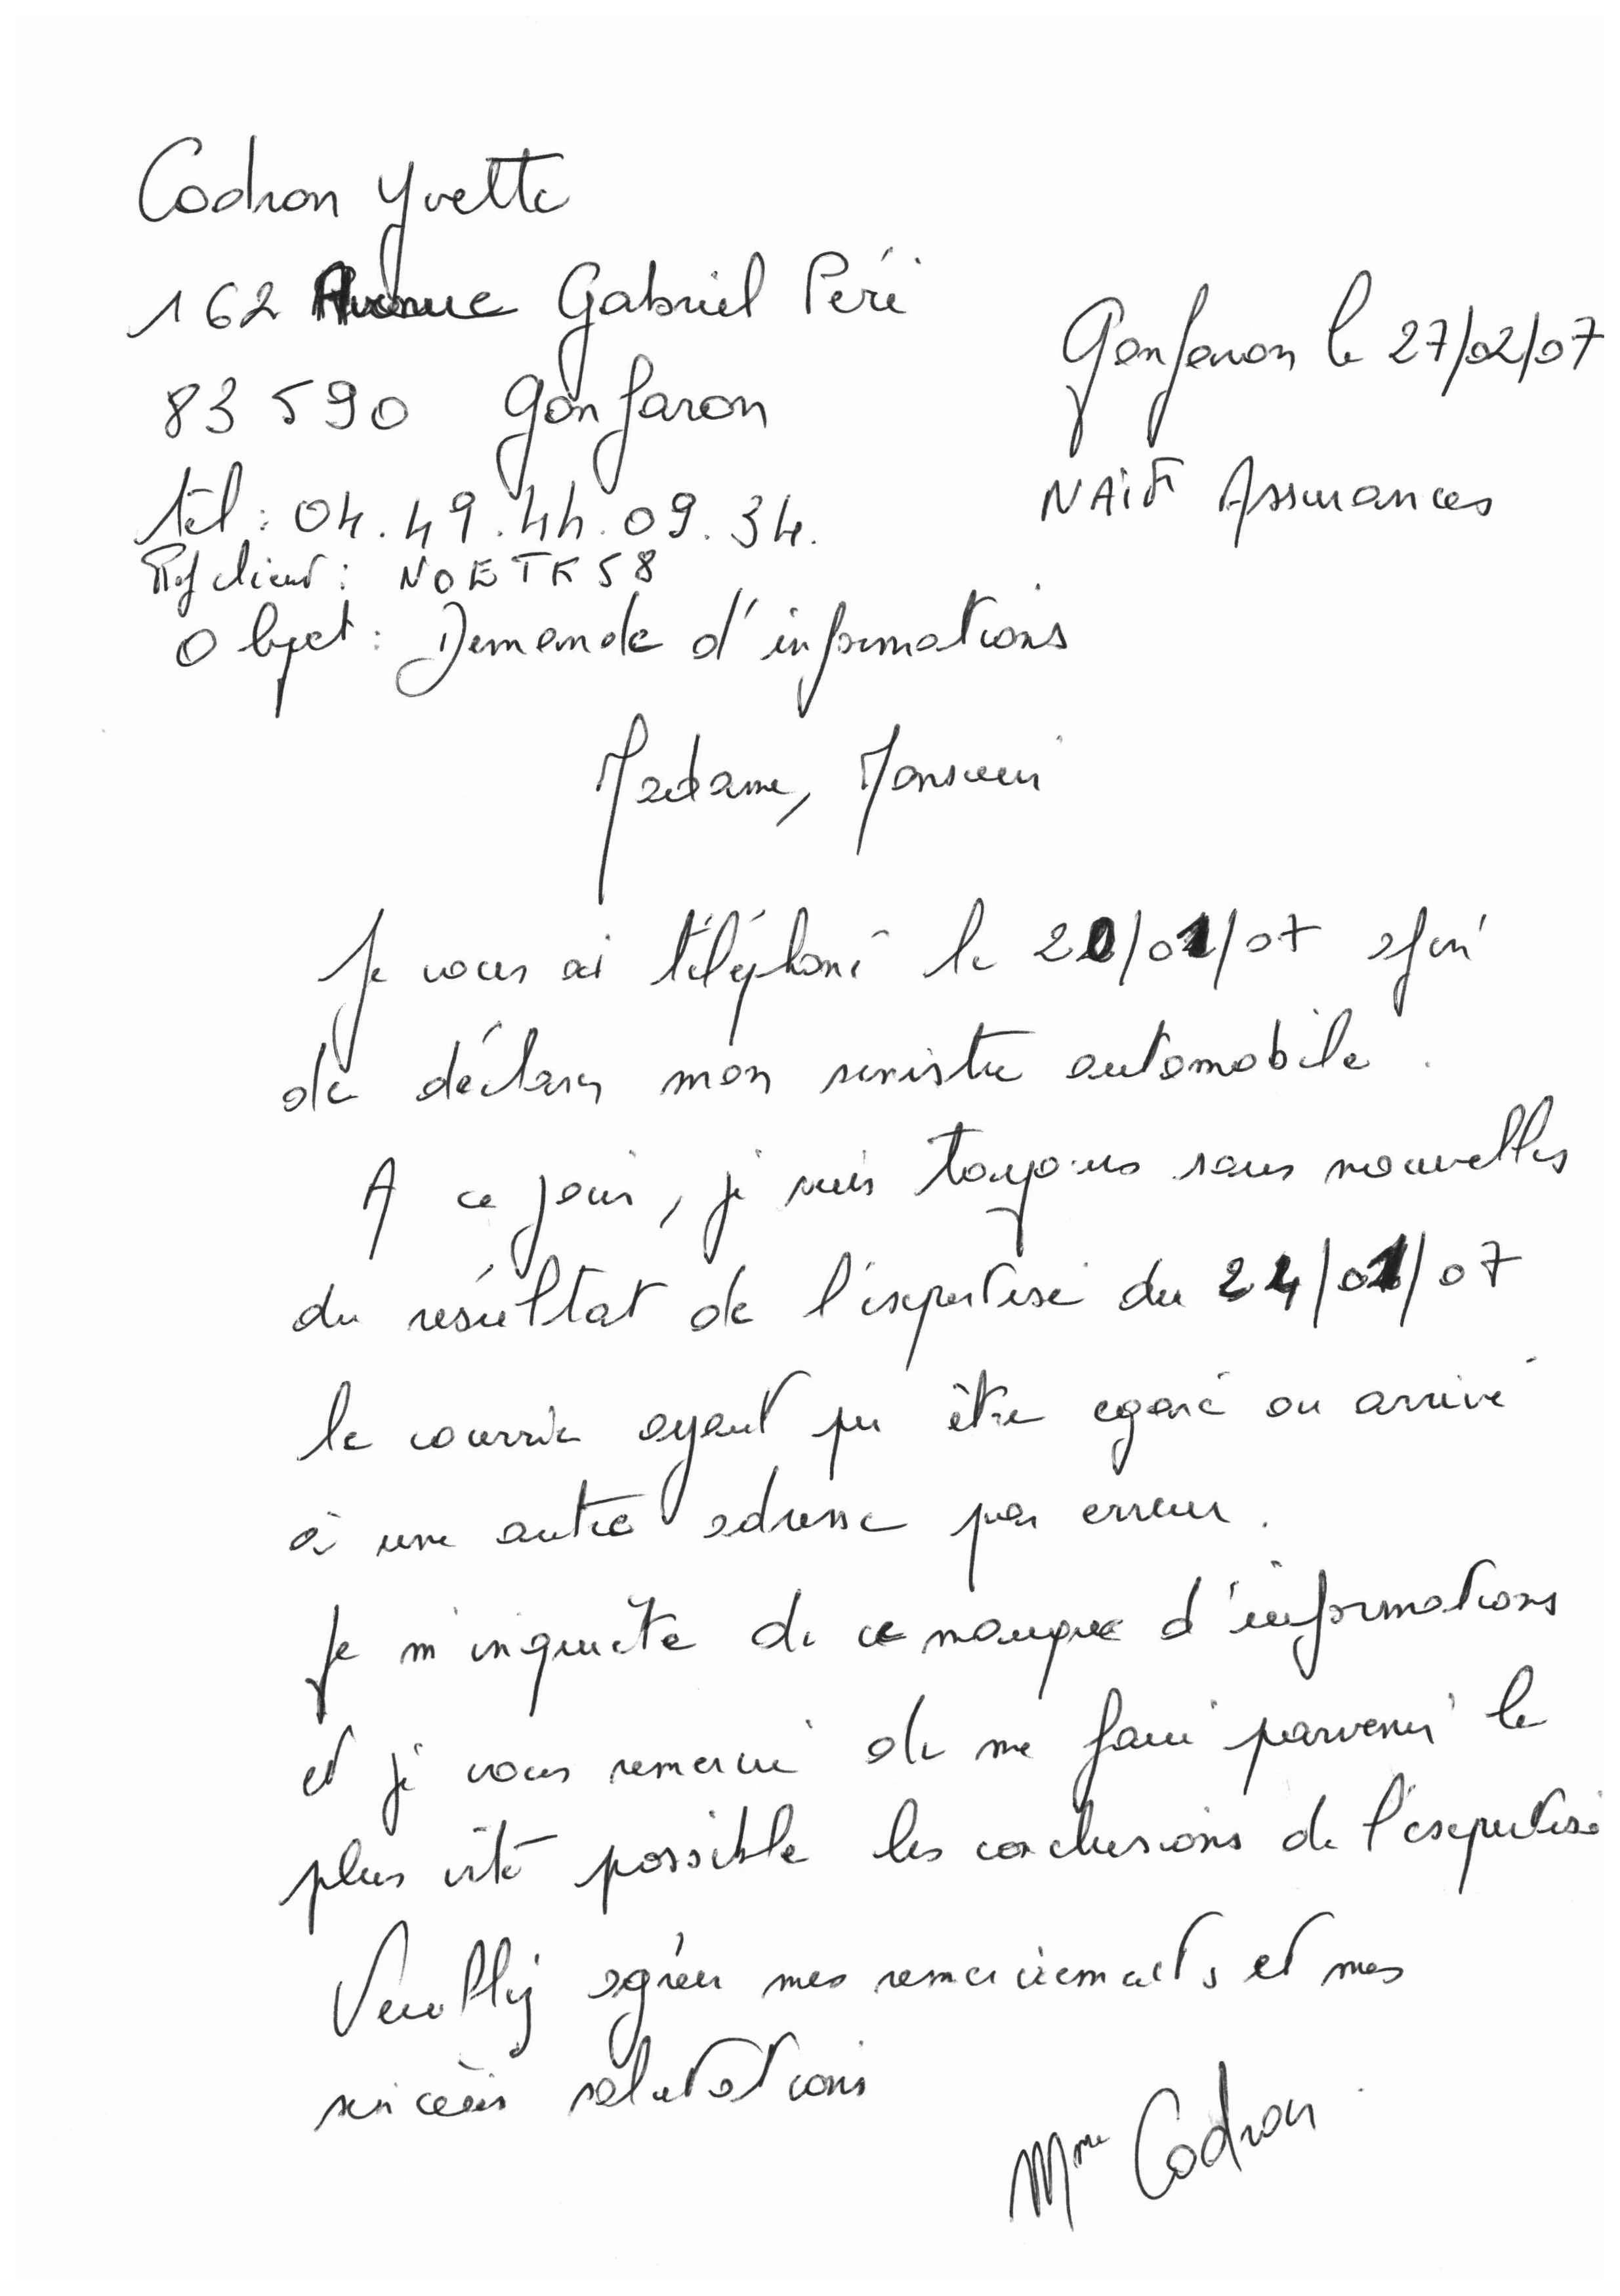 Codron Yvette
162 Avenue Gabriel Péri
Gonfaron le 27/02/07
83 590 Gonfaron
NAïF Assurances
tél : 04.49.44.09.34.
Ref client : NOETK58
Objet : Demande d'informations
Madame, Monsieur
Je vous ai téléphoné le 20/01/07 afin
de déclarer mon sinistre automobile.
A ce jour, je suis toujours sans nouvelles
du résultat de l'expertise du 24/01/07
le courrier ayant pu être egaré ou arrivé
à une autre adresse par erreur.
Je m'inquiète de ce manque d'informations
et je vous remercie de me faire parvenir le
plus vite possible les conclusions de l'expertise
Veuillez agréer mes remerciements et mes
sincères salutations
Mme Codron